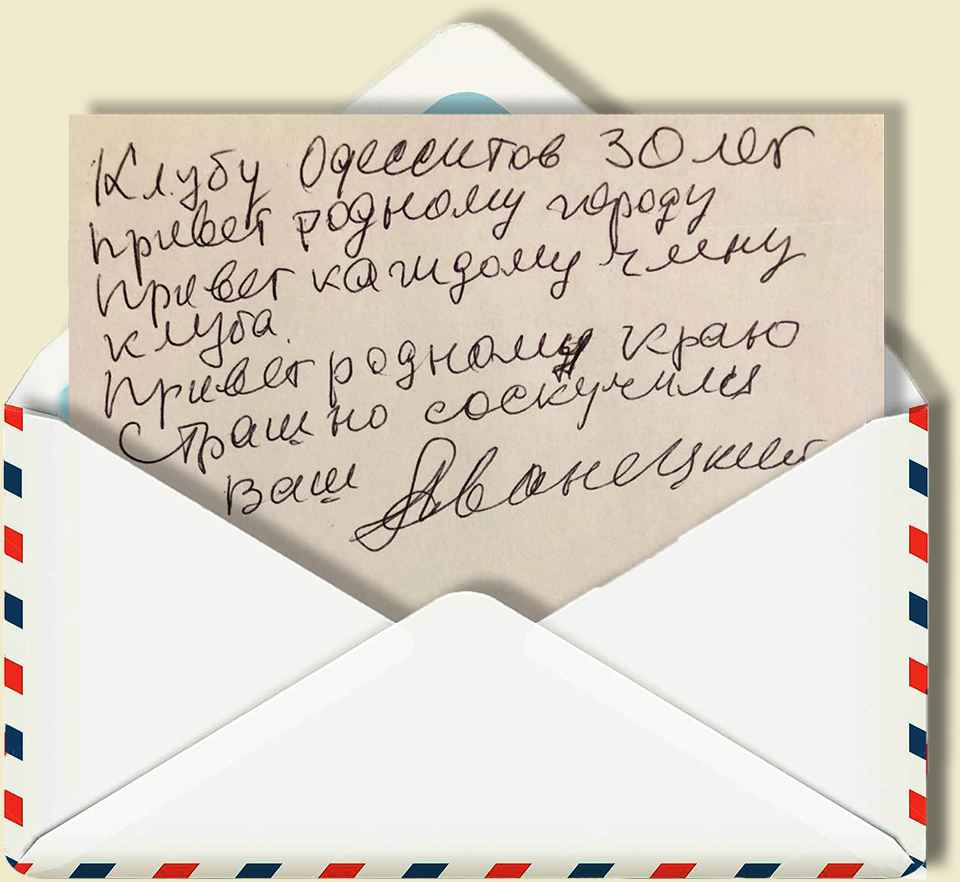 Клубу Одесситов 30 лет
Привет родному городу
Привет каждому члену
клуба.
Привет родному краю
Страшно соскучился
Ваш Жванецкий